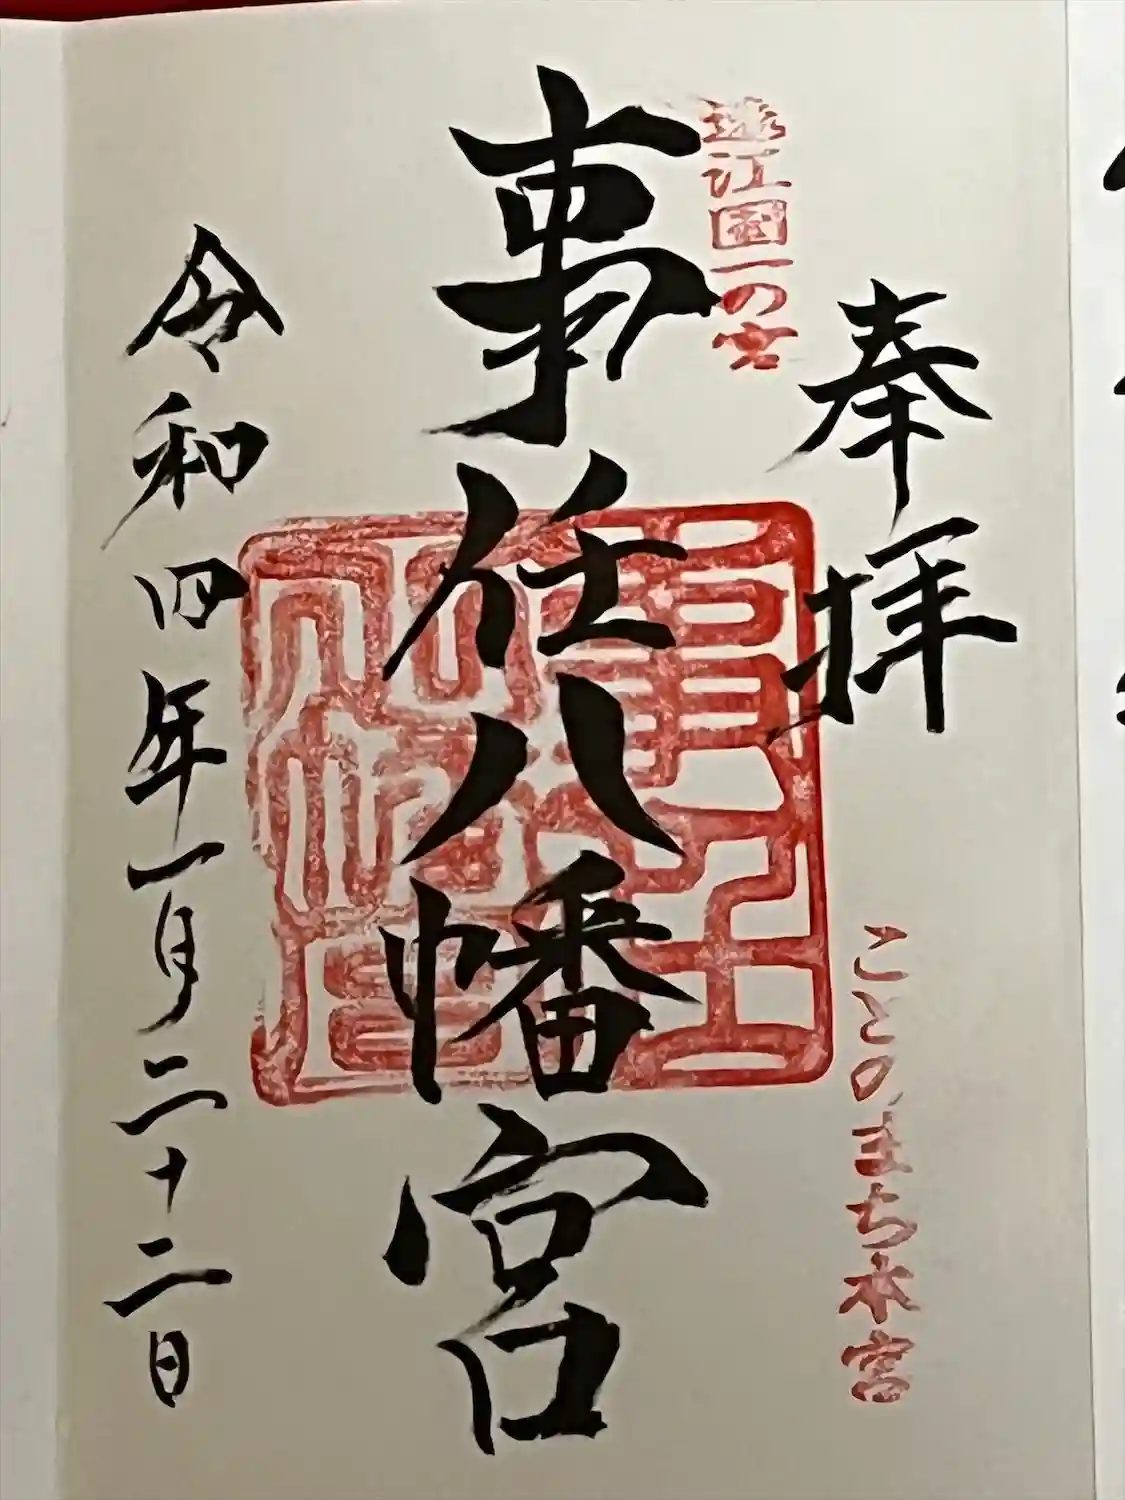 奉拝
ことのまち本宮
遠江国一の宮
事任八幡宮
令和四年一月二十二日